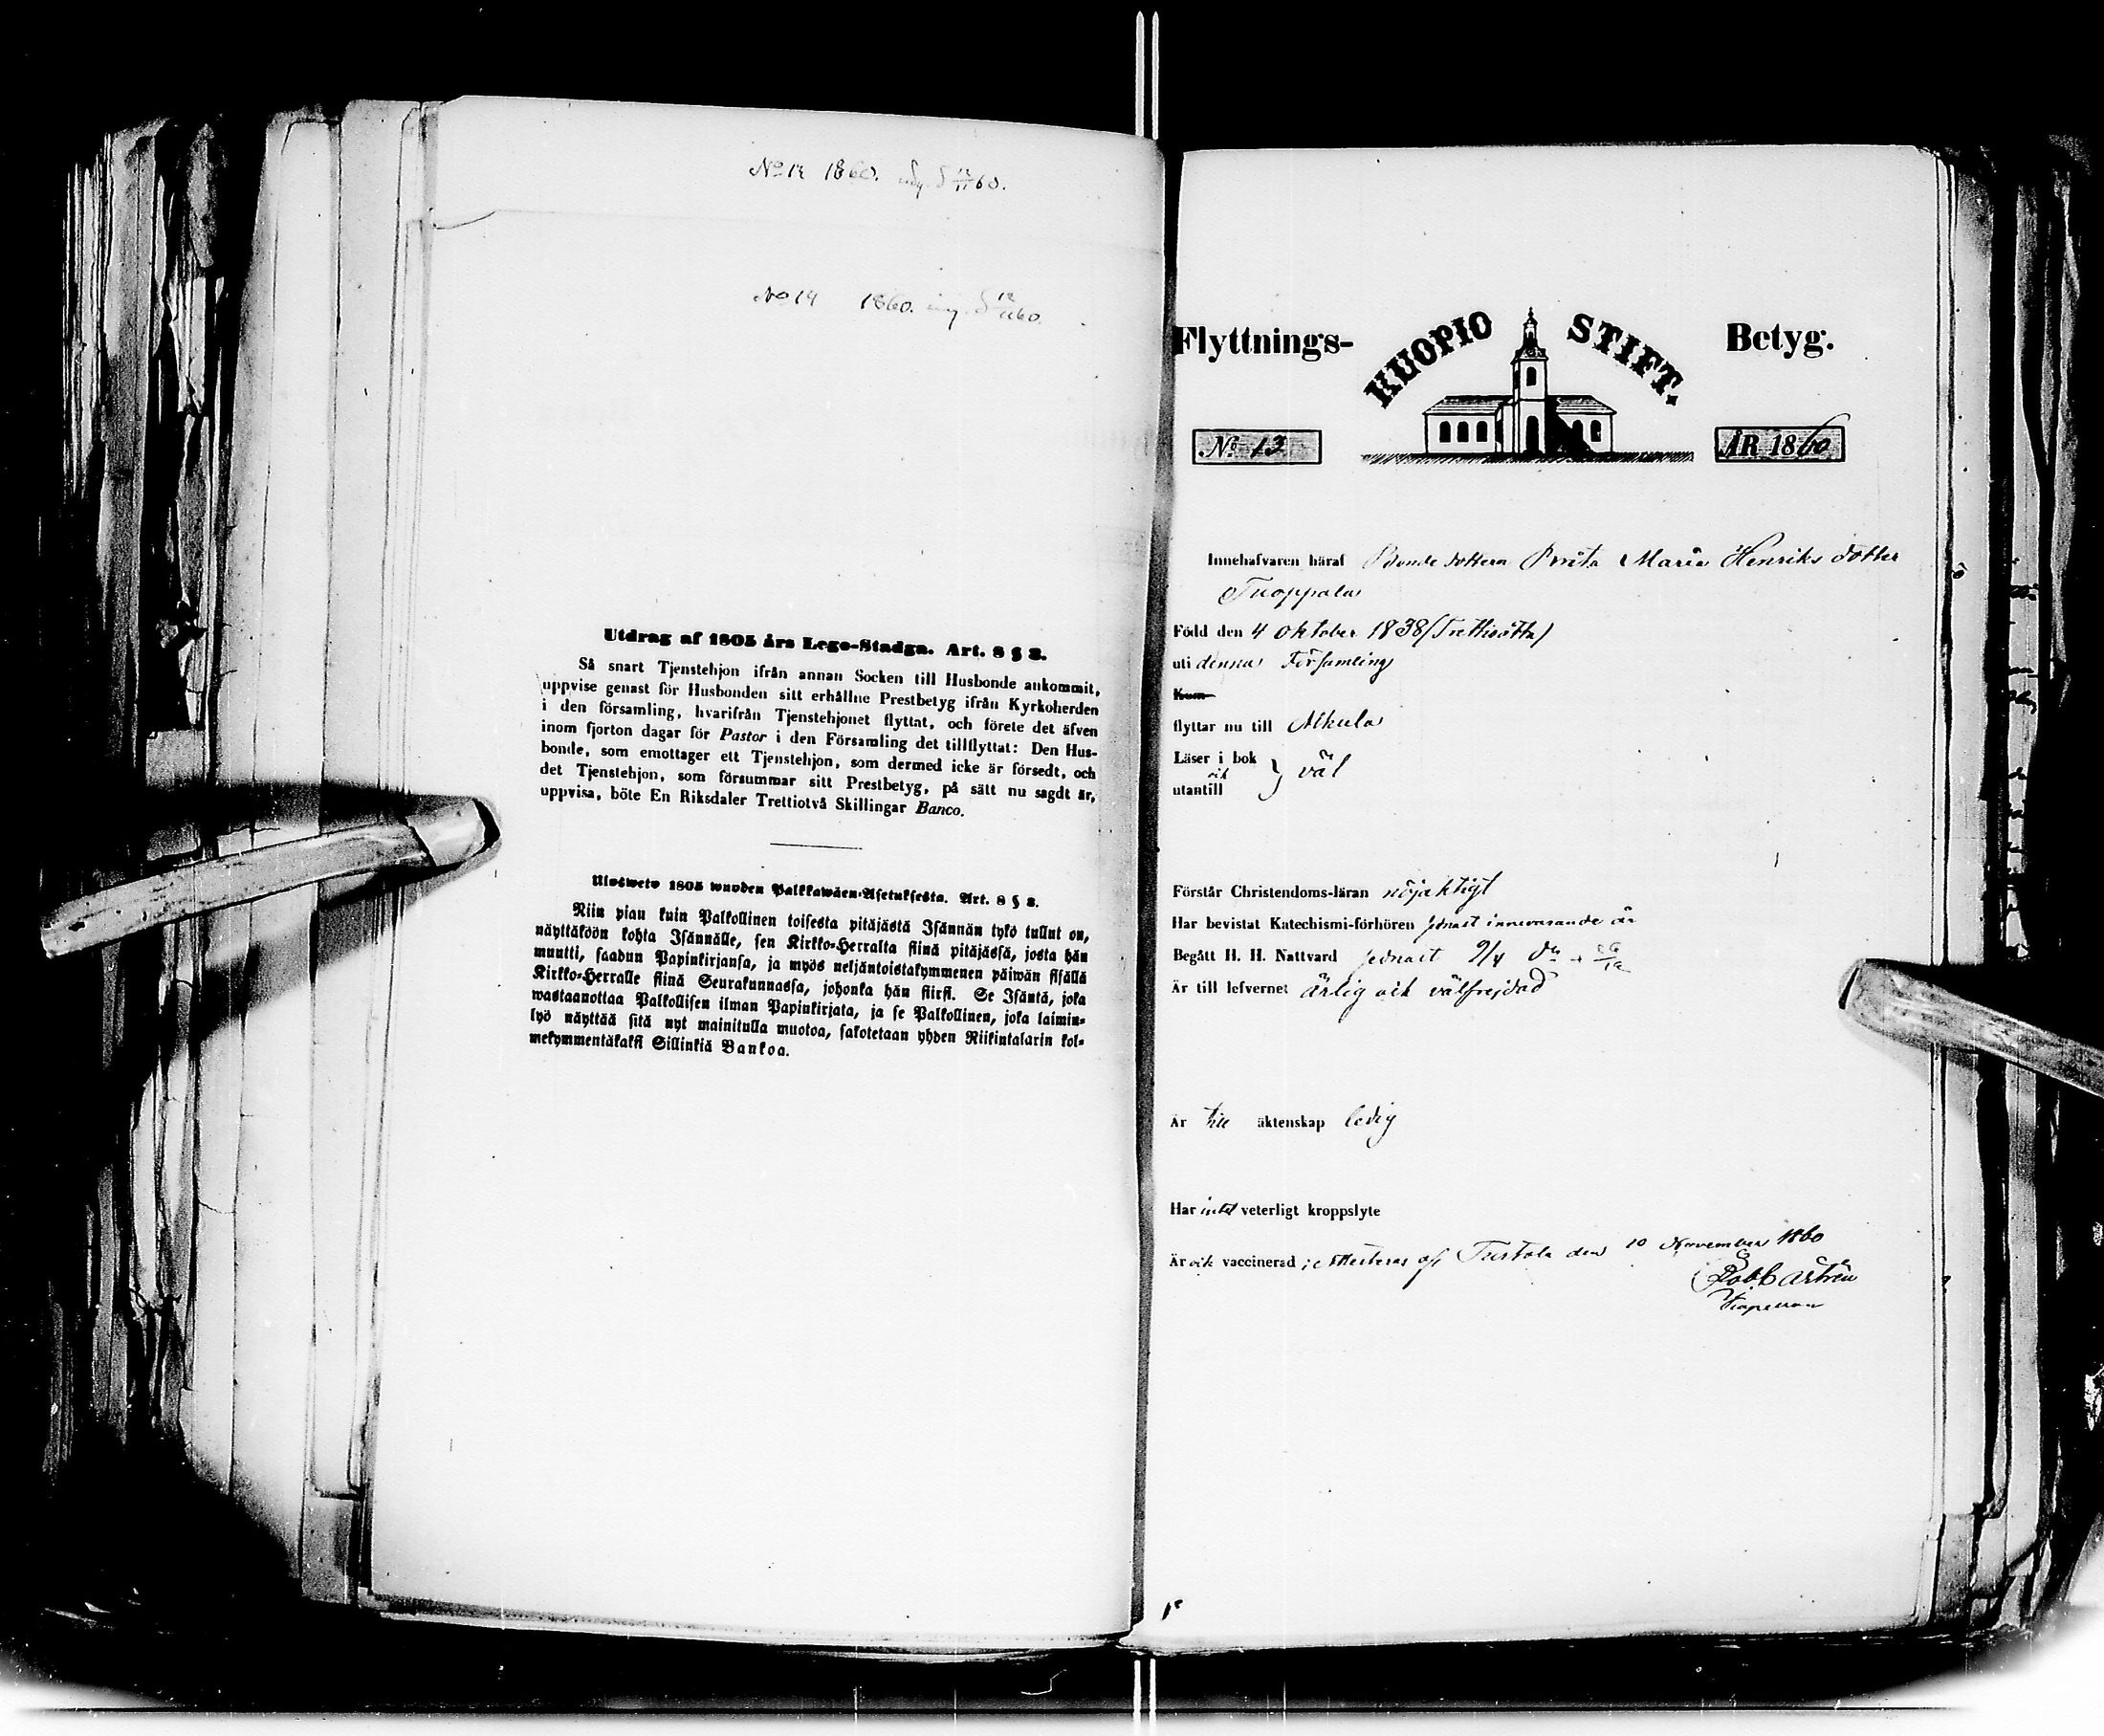 No 12 1860. ing. d 12/11 60.
No 14 1860. ing. d 12/11 60.
Utdrag af 1805 års Lego-Stadga. Art. 8 § 8.
Så snart Tjenstehjon ifrån annan Socken till Husbonde ankommit,
uppvise genast för Husbonden sitt erhållne Prestbetyg ifrån Kyrkoherden
i den församling, hvarifrån Tjenstehjonet flyttat, och förete det äfven
inom fjorton dagar för Pastor i den Församling det tillflyttat: Den Hus-
bonde, som emottager ett Tjenstehjon, som dermed icke är försedt, och
det Tjenstehjon, som försummar sitt Prestbetyg, på sätt nu sagdt är,
uppvisa, böte En Riksdaler Trettiotvå Skillingar Banco.
Ulosweto 1805 wuoden Palkkawäen-Asetuksesta. Art. 8 § 8.
Niin pian kuin Palkollinen toisesta pitäjästä Isännän tykö tullut on,
näyttäköön kohta Isännälle, sen Kirkko-Herralta siinä pitäjässä, josta hän
muutti, saadun Papinkirjansa, ja myös neljäntoistakymmenen päiwän sisällä
Kirkko-Herralle siinä Seurakunnassa, johonka hän siirsi. Se Isäntä, joka
wastaanottaa Palkollisen ilman Papinkirjata, ja se Palkollinen, joka laimin-
lyö näyttää sitä nyt mainitulla muotoa, sakotetaan yhden Riikintalarin kol-
mekymmentäkaksi Sillinkiä Bankoa.
Flyttnings- KUOPIO STIFT. Betyg.
No 13 ÅR 1860
Innehafvaren häraf Bondedottern Brita Maria Henriksdotter
Tuoppala
Född den 4 Oktober 1838 (Trettioåtta)
uti denna Församling
Kom
flyttar nu till Alkula
Läser i bok
och } väl
utantill
Förstår Christendoms-läran nöjaktigt
Har bevistat Katechismi-förhören sednast innevarande år
Begått H. H. Nattvard sednast 9/4
Är till lefvernet ärlig och välfrejdad
Är till äktenskap ledig
Har intet veterligt kroppslyte
Är och vaccinerad; attesteras af Turtola den 10 November 1860
Rob Castrén
Kapellan